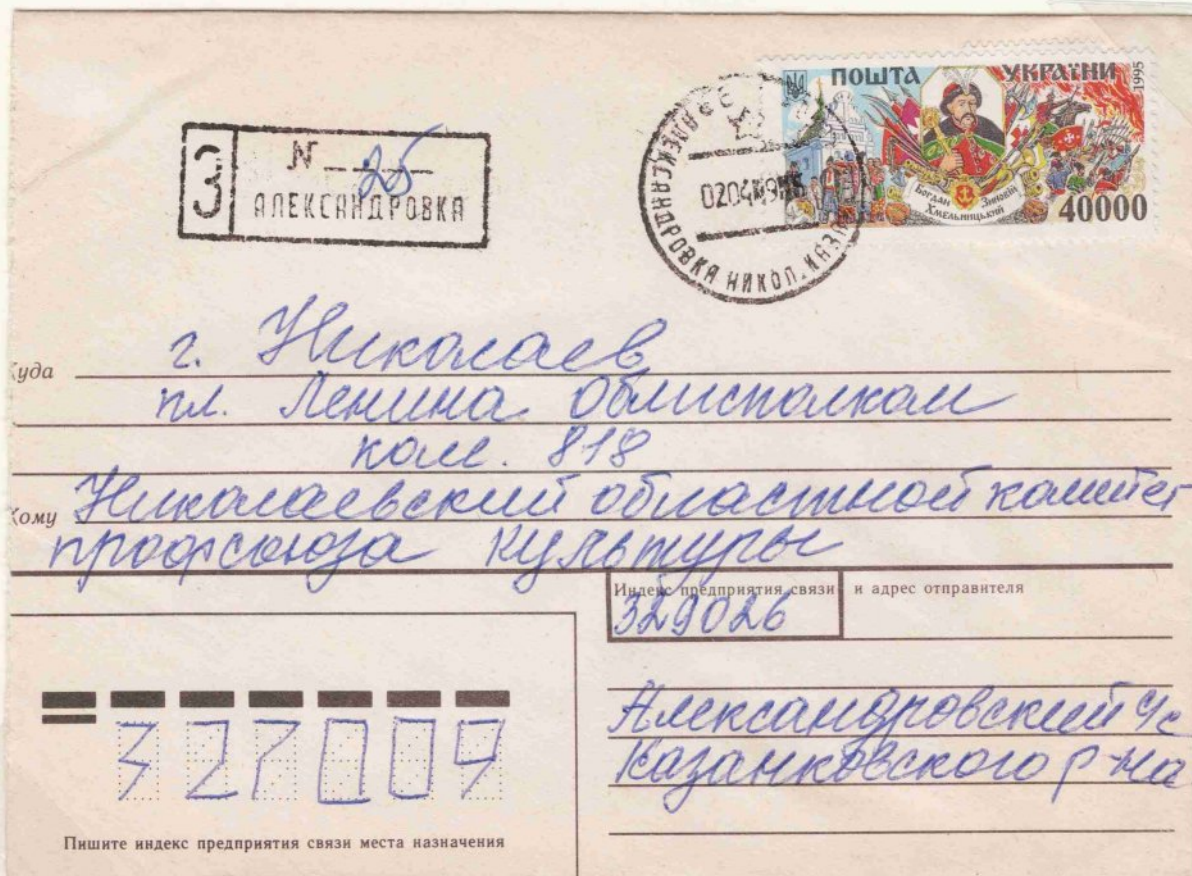 ПОШТА УКРАЇНИ
1995
Богдан Зиновій
Хмельницький
40000
АЛЕКСАНДРОВКА НИКОП. КАЗ
020496
З
N 25
АЛЕКСАНДРОВКА
Куда г. Николаев
пл. Ленина облисполком
ком. 818
Кому Николаевский областной комитет
профсоюза культуры
Индекс предприятия связи и адрес отправителя
329026
Александровский с/с
Казанковского р-на
327009
Пишите индекс предприятия связи места назначения